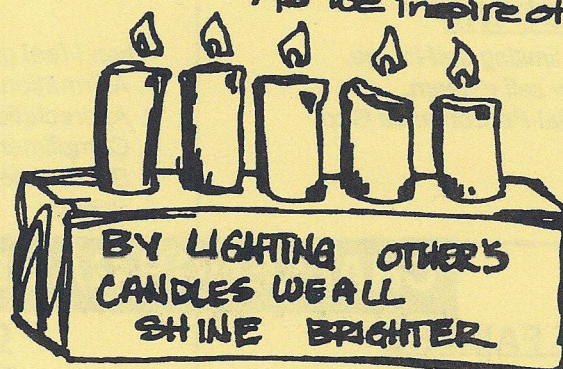 we Inspire
BY LIGHTING OTHER'S
CANDLES WE ALL
SHINE BRIGHTER